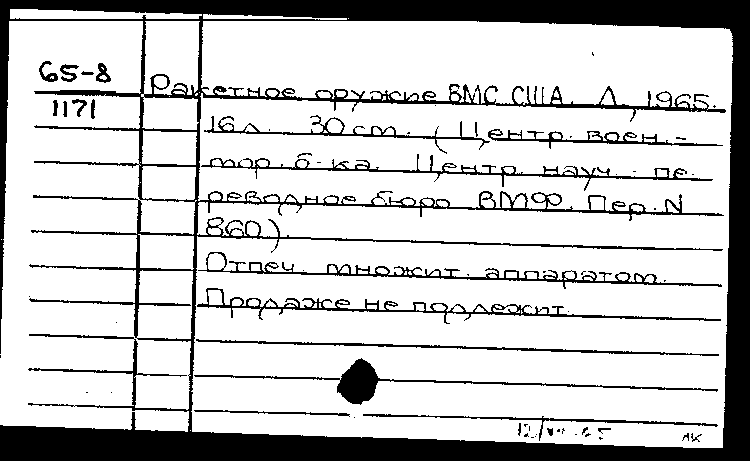 65-8
1171
Ракетное оружие ВМС США. Л., 1965.
16л. 30 cm. (Центр. воен.-
мор. б-ка. Центр. науч.- пе-
реводное бюро ВМФ. Пер. N
860).
Отпеч. множит. аппаратом.
Продаже не подлежит.